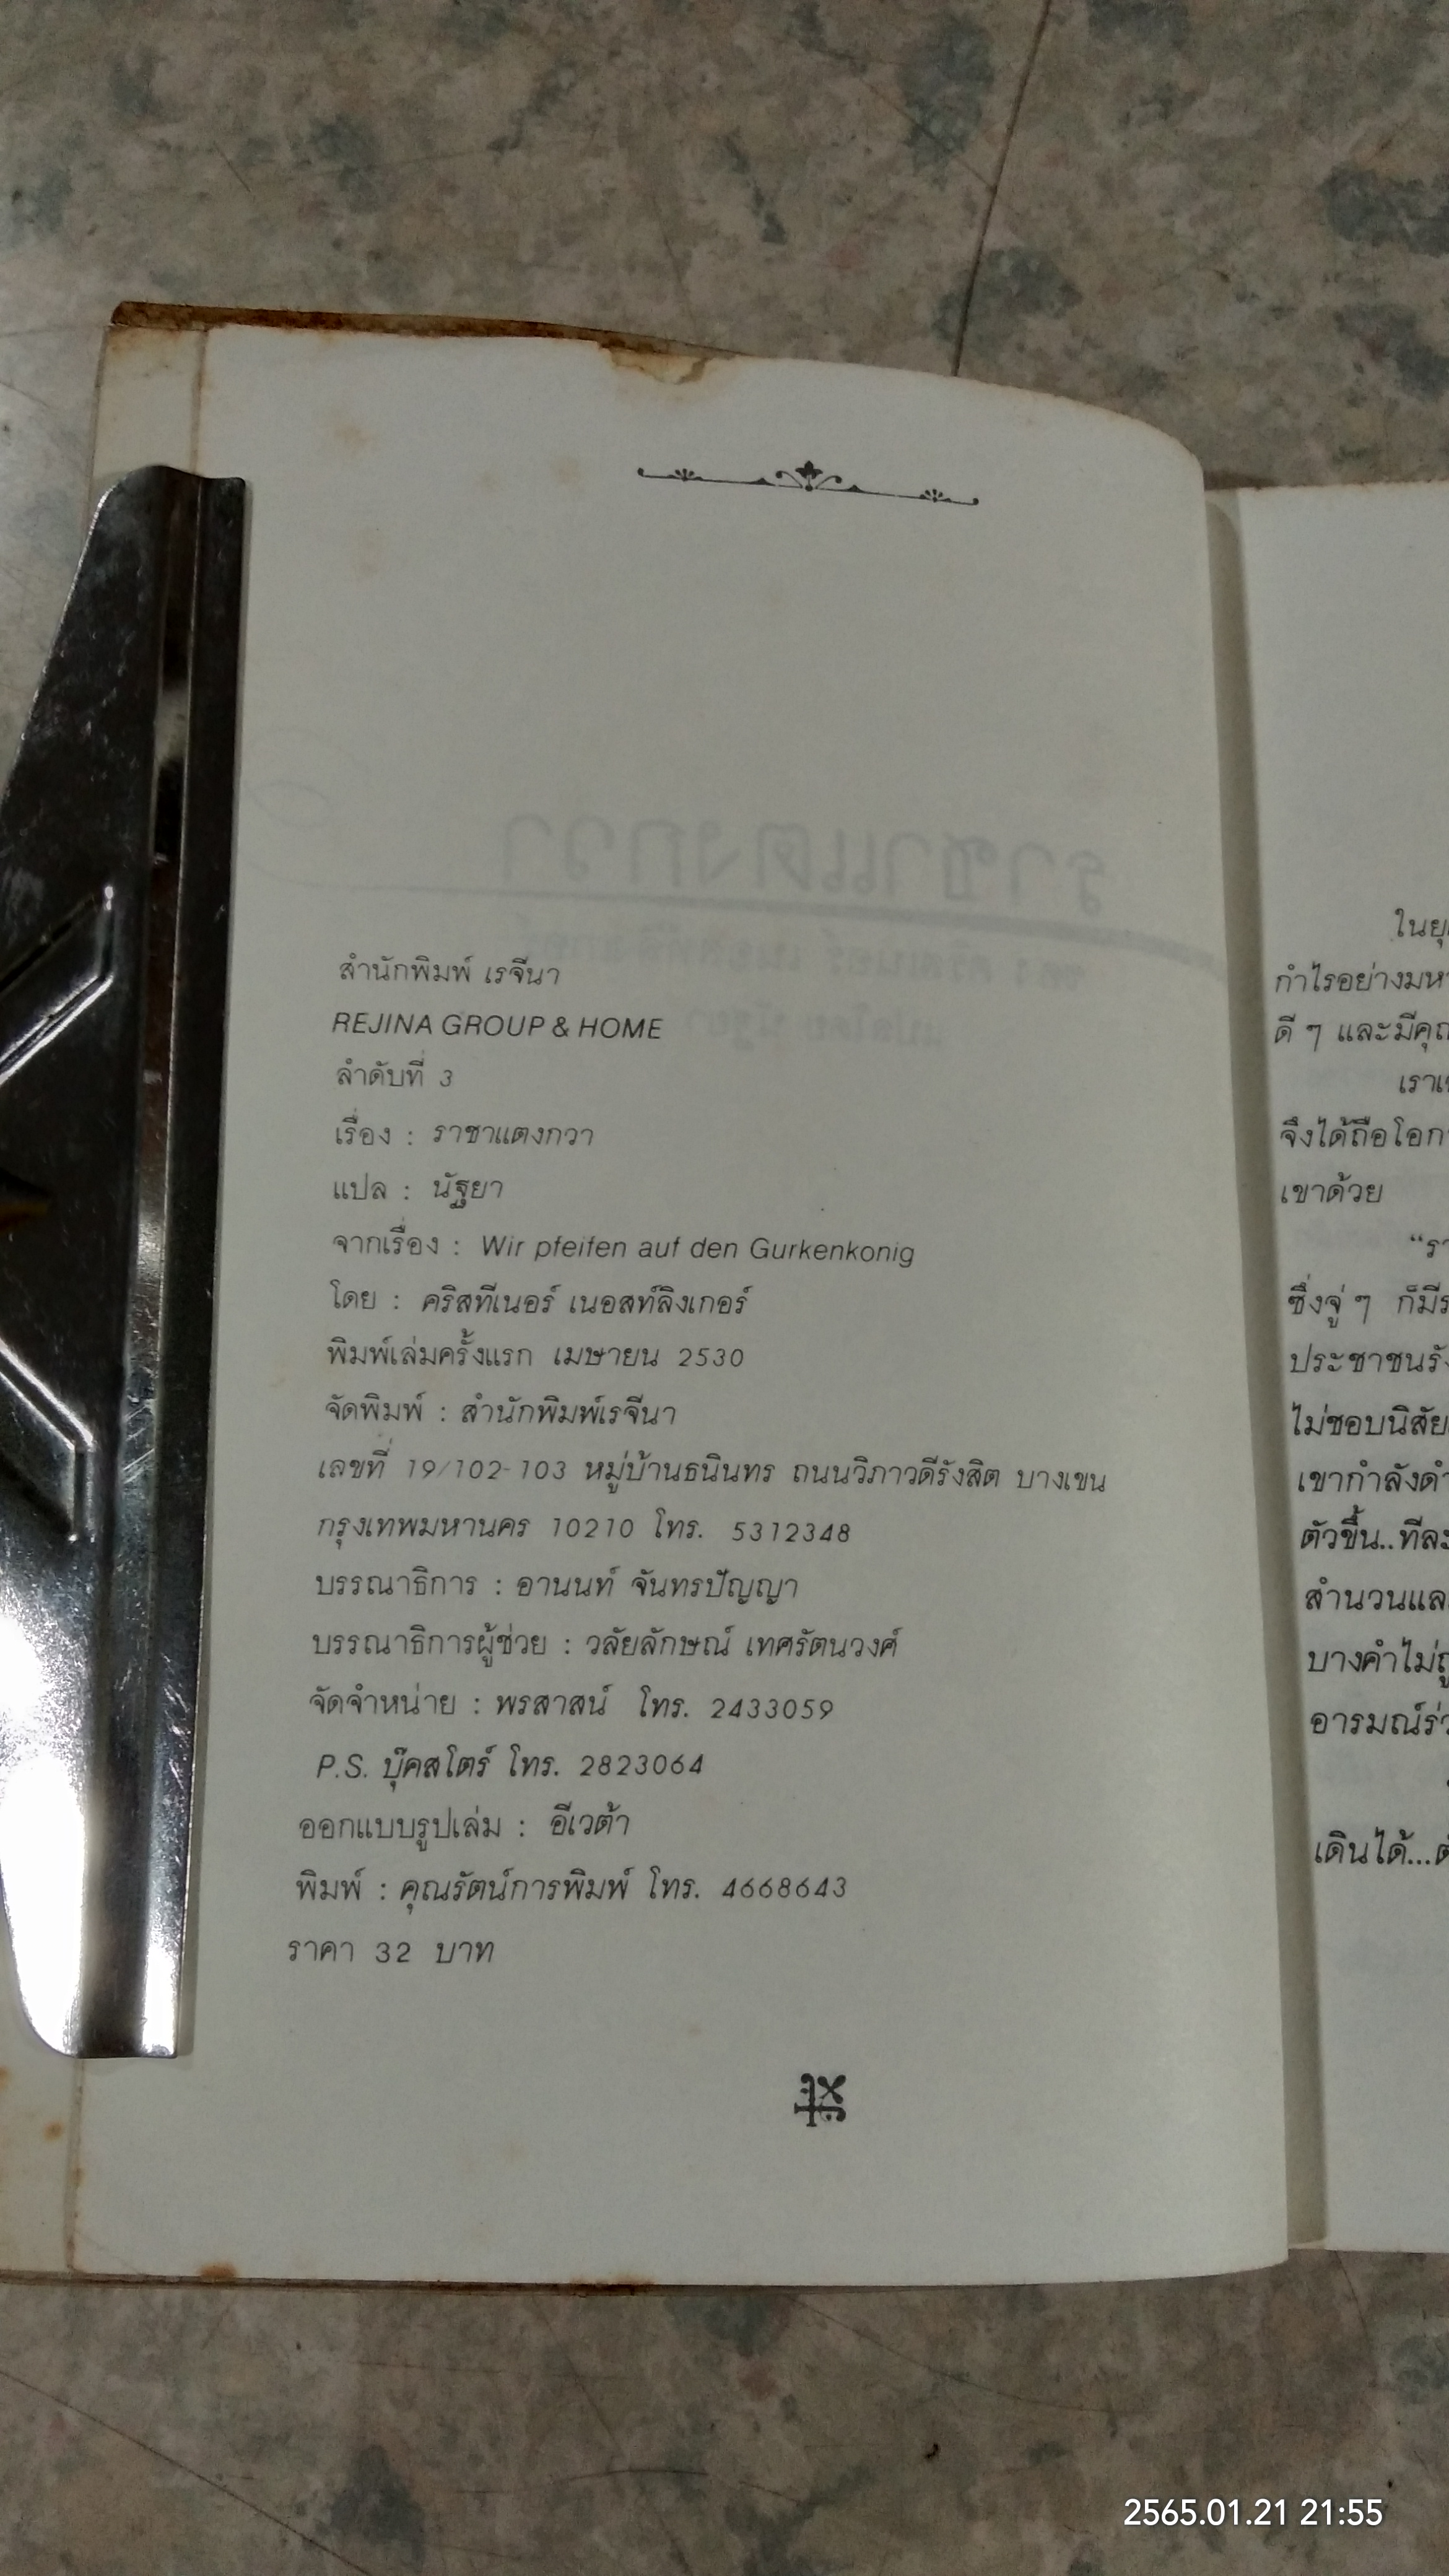 สำนักพิมพ์ เรจีนา
REJINA GROUP & HOME
ลำดับที่ 3
เรื่อง : ราชาแตงกวา
แปล : นัฐยา
จากเรื่อง : Wir pfeifen auf den Gurkenkonig
โดย : คริสทีเนอร์ เนอสท์ลิงเกอร์
พิมพ์เล่มครั้งแรก เมษายน 2530
จัดพิมพ์ : สำนักพิมพ์เรจีนา
เลขที่ 19/102-103 หมู่บ้านธนินทร ถนนวิภาวดีรังสิต บางเขน
กรุงเทพมหานคร 10210 โทร. 5312348
บรรณาธิการ : อานนท์ จันทรปัญญา
บรรณาธิการผู้ช่วย : วลัยลักษณ์ เทศรัตนวงศ์
จัดจำหน่าย : พรสาสน์ โทร. 2433059
P.S. บุ๊คสโตร์ โทร. 2823064
ออกแบบรูปเล่ม : อีเวต้า
พิมพ์ : คุณรัตน์การพิมพ์ โทร. 4668643
ราคา 32 บาท
ในยุ
กำไรอย่างมห
ดี ๆ และมีคุณ
เรา
จึงได้ถือโอก
เขาด้วย
“รา
ซึ่งจู่ ๆ ก็มี
ประชาชนรั
ไม่ชอบนิสัย
เขากำลังดำ
ตัวขึ้น..ทีละ
สำนวนแล
บางคำไม่ถู
อารมณ์ร่ว
เดินได้...ต
2565.01.21 21:55